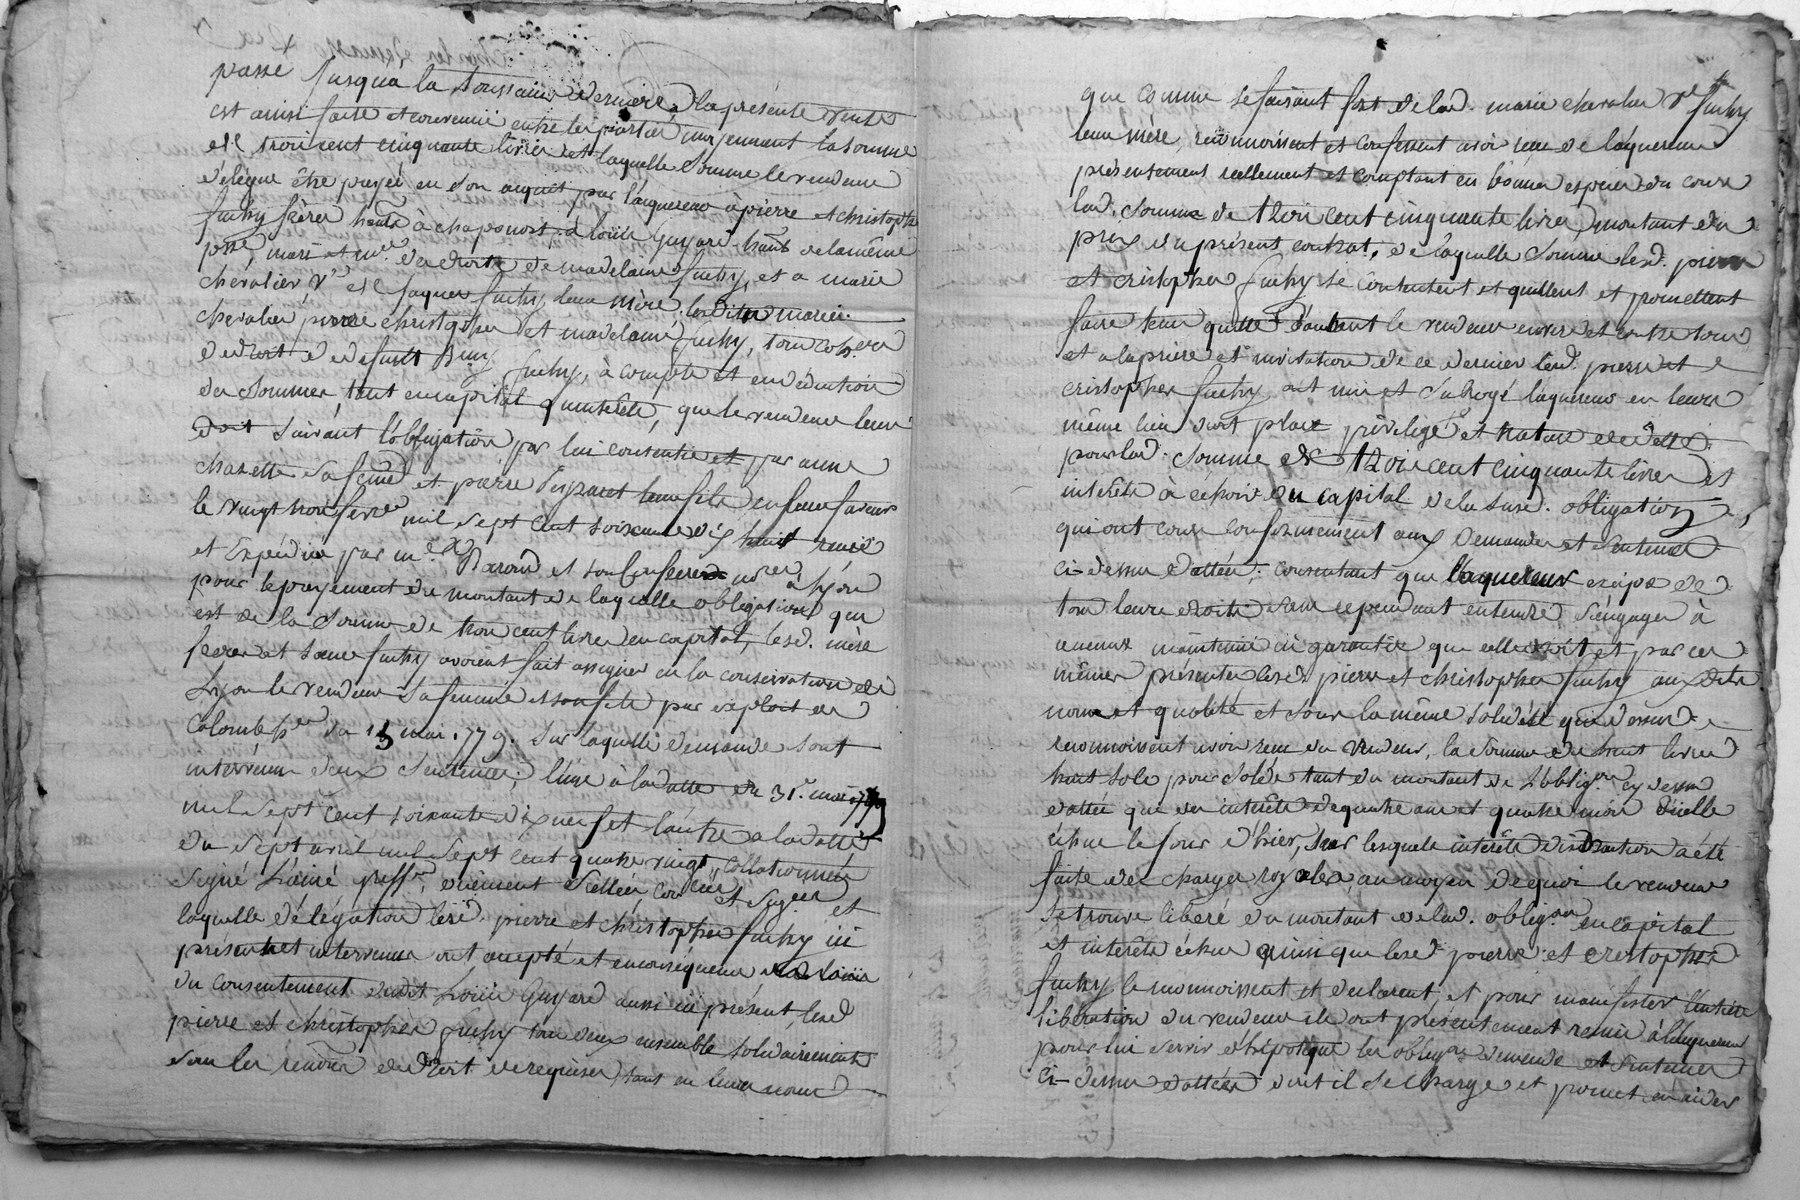 passé jusqua la toussaint derniere, la présente vente
est ainsi faite et convenue entre les parties moyennant la somme
de trois cent cinquante livres laquelle somme le vendeur
délègue être payée en son acquit par l'aquereur à pierre et christophe
fuchy frères habts à chaponost à loüis Guyard habt de la même
psse, mari et me des droits de madelaine fuchy, et a marie
chevalier ve de jaques fuchy leur mère, lesdits marie
chevalier, pierre christophe et madelaine fuchy, tous cohers
de droit de defunt fuchy, à compte et en déduction
des sommes, tant en capital qu'intérêts, que le vendeur leur
doit suivant l'obligation par lui consentie et par anne
chazette sa feme et pierre leur fils en leur faveur
le vingt trois fevrier mil sept cent soixante dix huit reçue
et Expédiée par me et son confrere nores à lyon
pour le payement du montant de laquelle obligation qui
est de la somme de trois cent livres en capital, lesd. mère
freres et sœur fuchy avoient fait assigner en la conservation de
Lyon le vendeur sa femme et son fils par exploit de
du 15 mai 1779. sur laquelle demande sont
intervenues deux sentences, l'une à la datte du 31. mai 1779
mil sept cent soixante dix neuf et l'autre a la datte
du sept avril mil sept cent quatre vingt, collationnées
signé duement scellées, et
laquelle délégation lesd. pierre et christophe fuchy ici
présents et intervenus ont accepté et en conséquence
du consentement dudit Loüis Guyard aussi ici présent, lesd
pierre et christophe fuchy tous deux ensemble solidairement
sans les de requises, tant en leurs noms
que comme se faisant fort de lad. marie chevalier ve fuchy
leur mère, reconnoissent et confessent avoir reçu de l'aquereur
présentement reellement et comptant en bonnes especes du cours
lad. somme de trois cent cinquante livres, montant du
prix du présent contrat, de laquelle somme lesd. pierre
et cristophe fuchy se contentent et quittent et promettent
faire tenir quitte d'autant le vendeur envers et contre tous
et a la priere et invitation de ce dernier lesd. pierre et
cristophe fuchy ont mis et subrogé l'aquereur en leurs
même lieu droit place privilege et nature de dette
pour lad. somme de trois cent cinquante livres et
intérêts à échoir du capital de la susd. obligation
qui ont cours conformement aux demandes et sentences
ci-dessus dattées; consentant que l'aquereur excipe de
tous leurs droits sans cependant entendre s'engager à
aucunes maintenue ni garantie quelle soit et par ces
mêmes présentes lesd. pierre et christophe fuchy aux dits
noms et qualité et sous la même solidité que dessus
reconnoissent avoir reçu du vendeur, la somme de huit livres
huit sols pour solde tant du montant de l'oblig.on cy dessus
dattée que des intérêts de quatre ans et quatre mois d'icelle
échus le jour d'hier, sur lesquels intérêts distraction a été
faite des charges royales, au moyen de quoi le vendeur
se trouve liberé du montant de lad. oblig.on en capital
et intérêts échus ainsi que lesd. pierre et cristophe
fuchy le reconnoissent et declarent, et pour manifester l'entiere
libération du vendeur ils ont présentement remis à l'aquereur
pour lui servir d'hipoteque les oblig.on demande et sentences
ci-dessus dattées dont il se charge et promet en aider